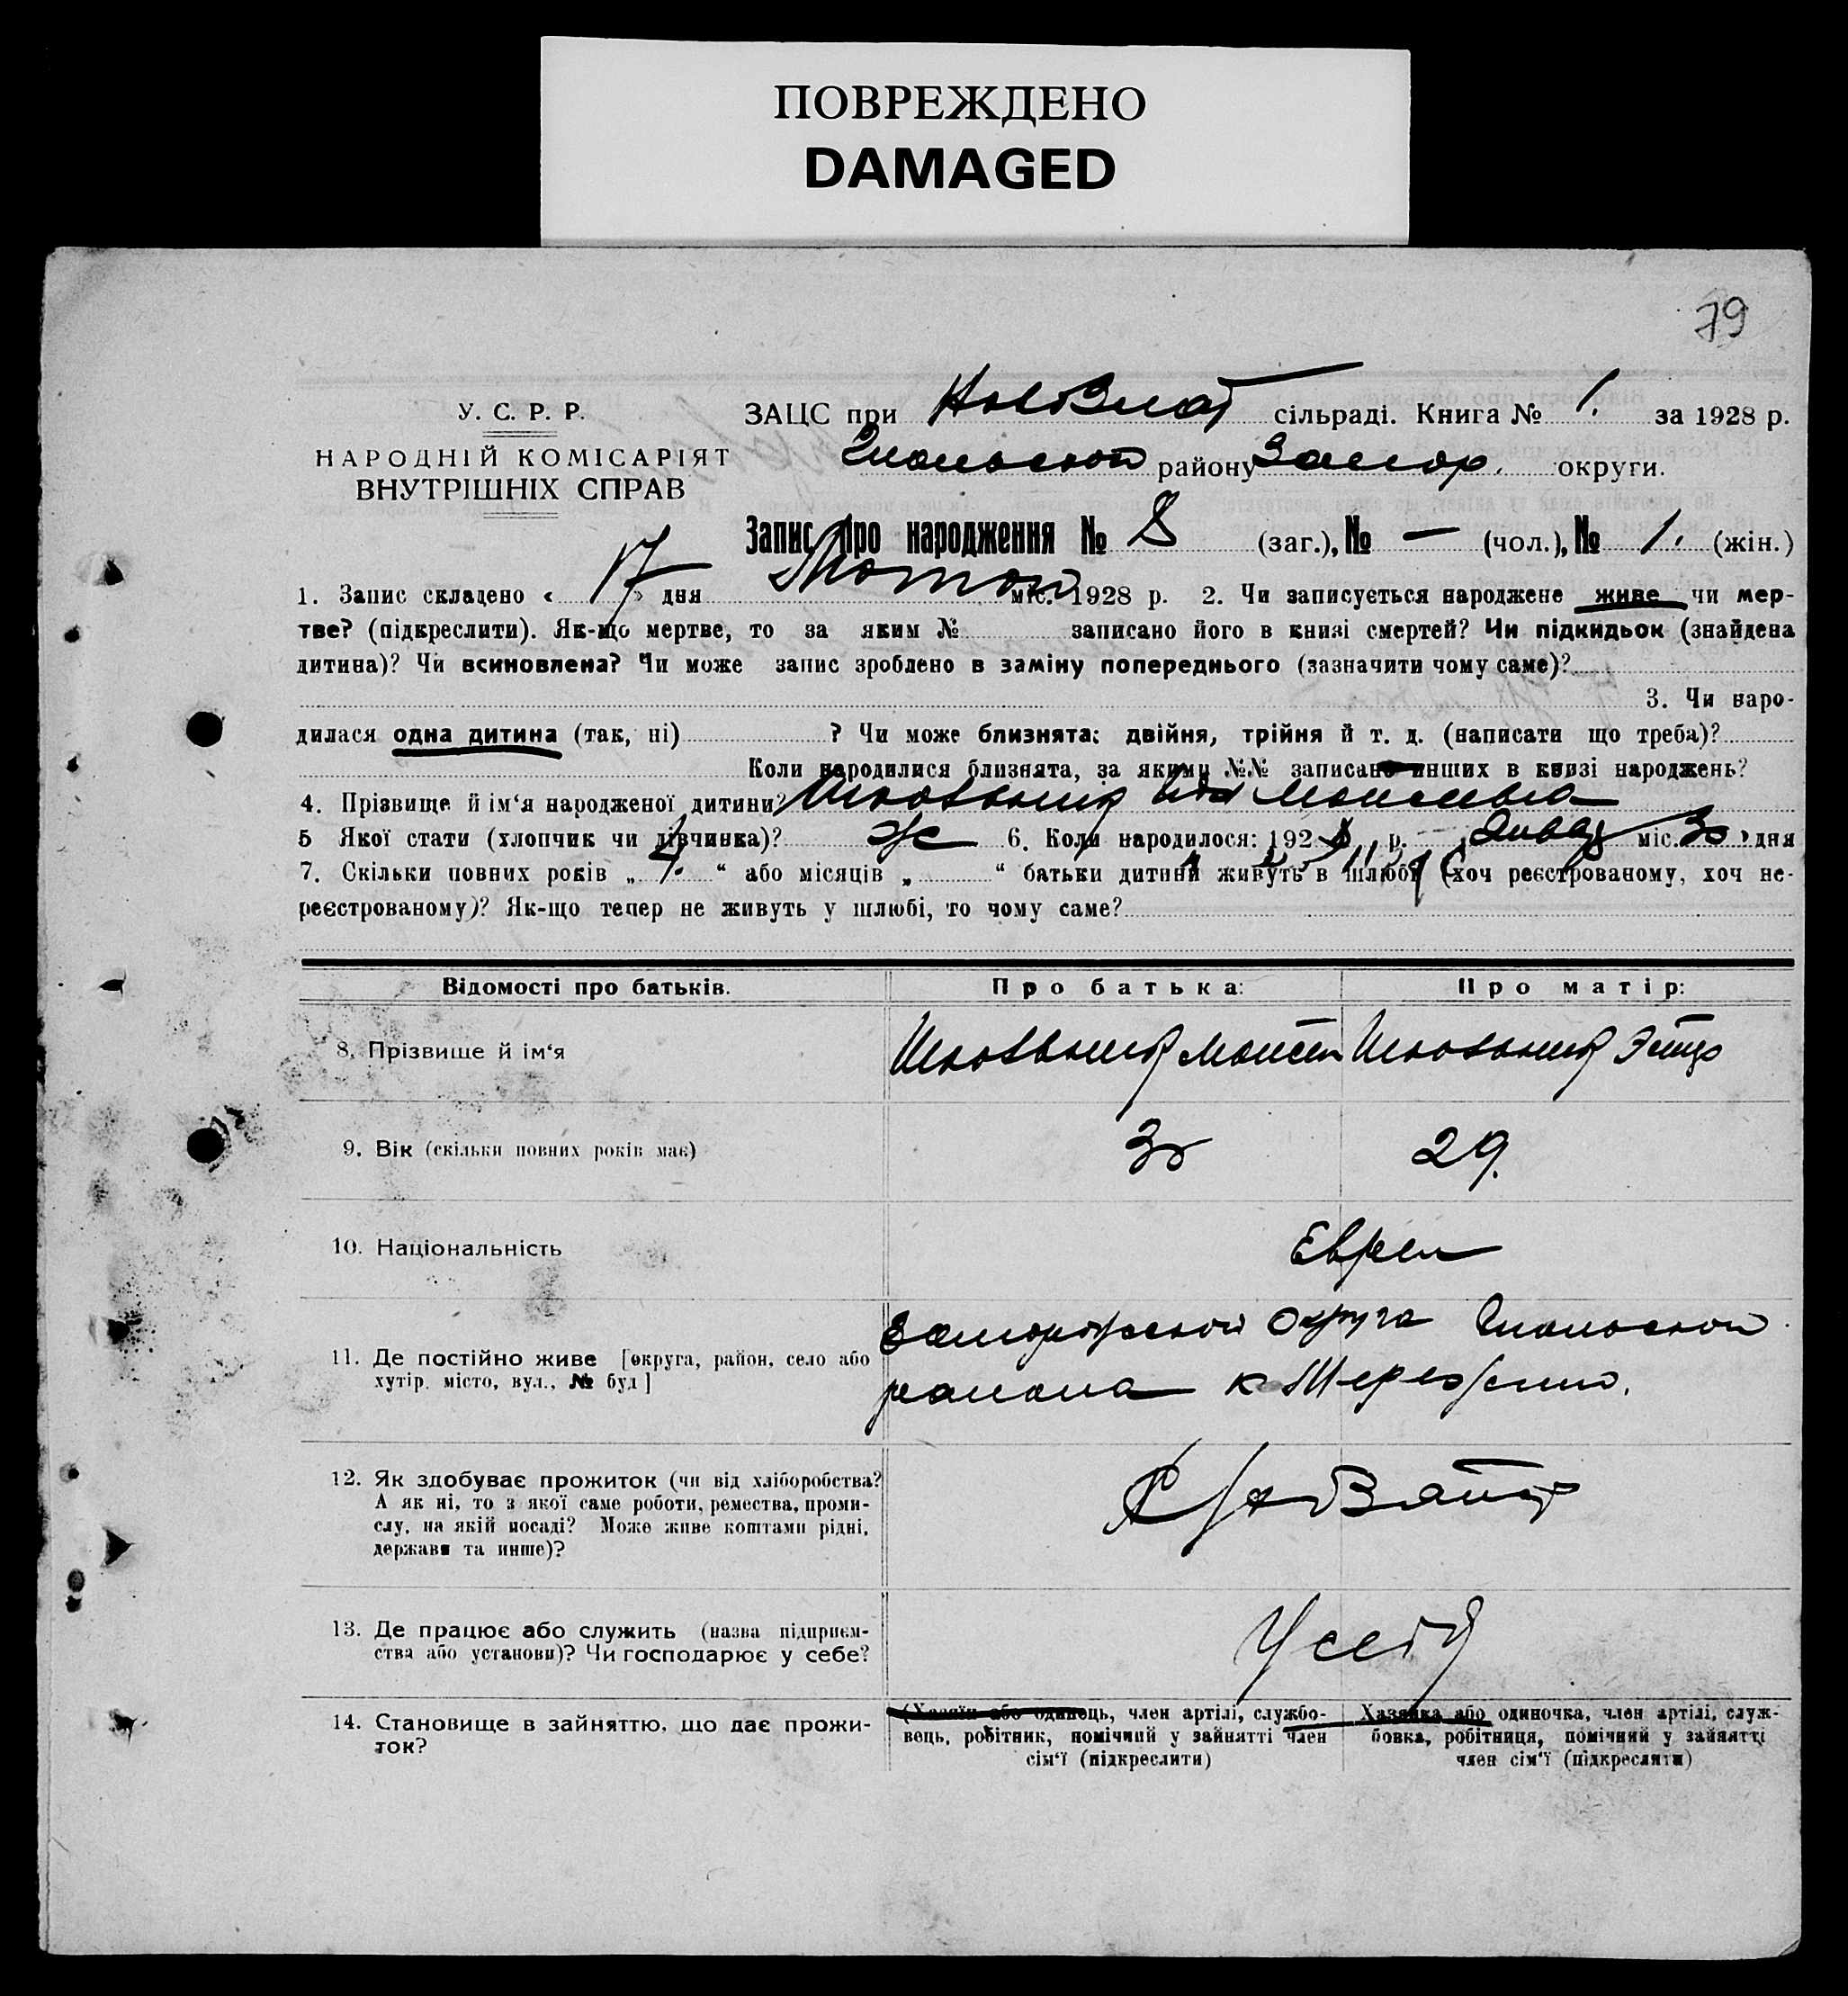 ПОВРЕЖДЕНО
DAMAGED
79
У. С. Р. Р.
НАРОДНІЙ КОМІСАРІЯТ
ВНУТРІШНІХ СПРАВ
ЗАЦС при НовЗлат сільраді. Книга № 1. за 1928 р.
району Запор. округи.
Запис про народження № 8 (заг.), № — (чол.), № 1. (жін.)
1. Запис складено « 17 » дня міс. 1928 р. 2. Чи записується народжене живе чи мер-
тве? (підкреслити). Як-що мертве, то за яким № записано його в книзі смертей? Чи підкидьок (знайдена
дитина)? Чи всиновлена? Чи може запис зроблено в заміну попереднього (зазначити чому саме)?
3. Чи наро-
дилася одна дитина (так, ні) ? Чи може близнята: двійня, трійня й т. д. (написати що треба)?
Коли народилися близнята, за якими №№ записано инших в книзі народжень?
4. Прізвище й ім‘я народженої дитини? Моисеевна
5 Якої стати (хлопчик чи дівчинка)? Ж 6. Коли народилося: 1928 р. Январ міс. 30 дня
7. Скільки повних років „ “ або місяців „ “ батьки дитини живуть в шлюбі (хоч реєстрованому, хоч не-
реєстрованому)? Як-що тепер не живуть у шлюбі, то чому саме?
Відомості про батьків.
Про батька:
Про матір:
8. Прізвище й ім‘я
Моисей
9. Вік (скільки повних років має)
30
29.
10. Національність
Евреи
11. Де постійно живе [округа, район, село або
хутір, місто, вул., № буд]
Запорожской Округа
района к
12. Як здобуває прожиток (чи від хліборобства?
А як ні, то з якої саме роботи, ремества, проми-
слу, на якій посаді? Може живе коштами рідні,
держави та инше)?
13. Де працює або служить (назва підприєм-
ства або установи)? Чи господарює у себе?
У себя
14. Становище в зайняттю, що дає прожи-
ток?
(Хазяїн або одинець, член артілі, службо-
вець, робітник, помічний у зайнятті член
сім‘ї (підкреслити)
Хазяйка або одиночка, член артілі, служ-
бовка, робітниця, помічний у зайнятті
член сім‘ї (підкреслити)